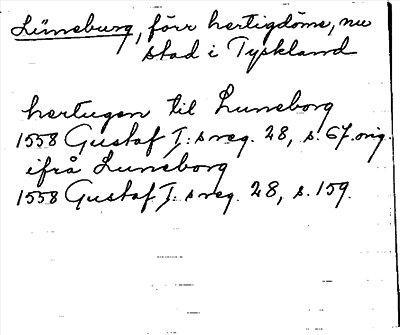 Lüneburg, förr hertigdöme, nu
stad i Tyskland
hertugen til Luneborg
1558 Gustaf I:s reg. 28, s. 67. orig.
ifrå Luneborg
1558 Gustaf I:s reg. 28, s. 159.